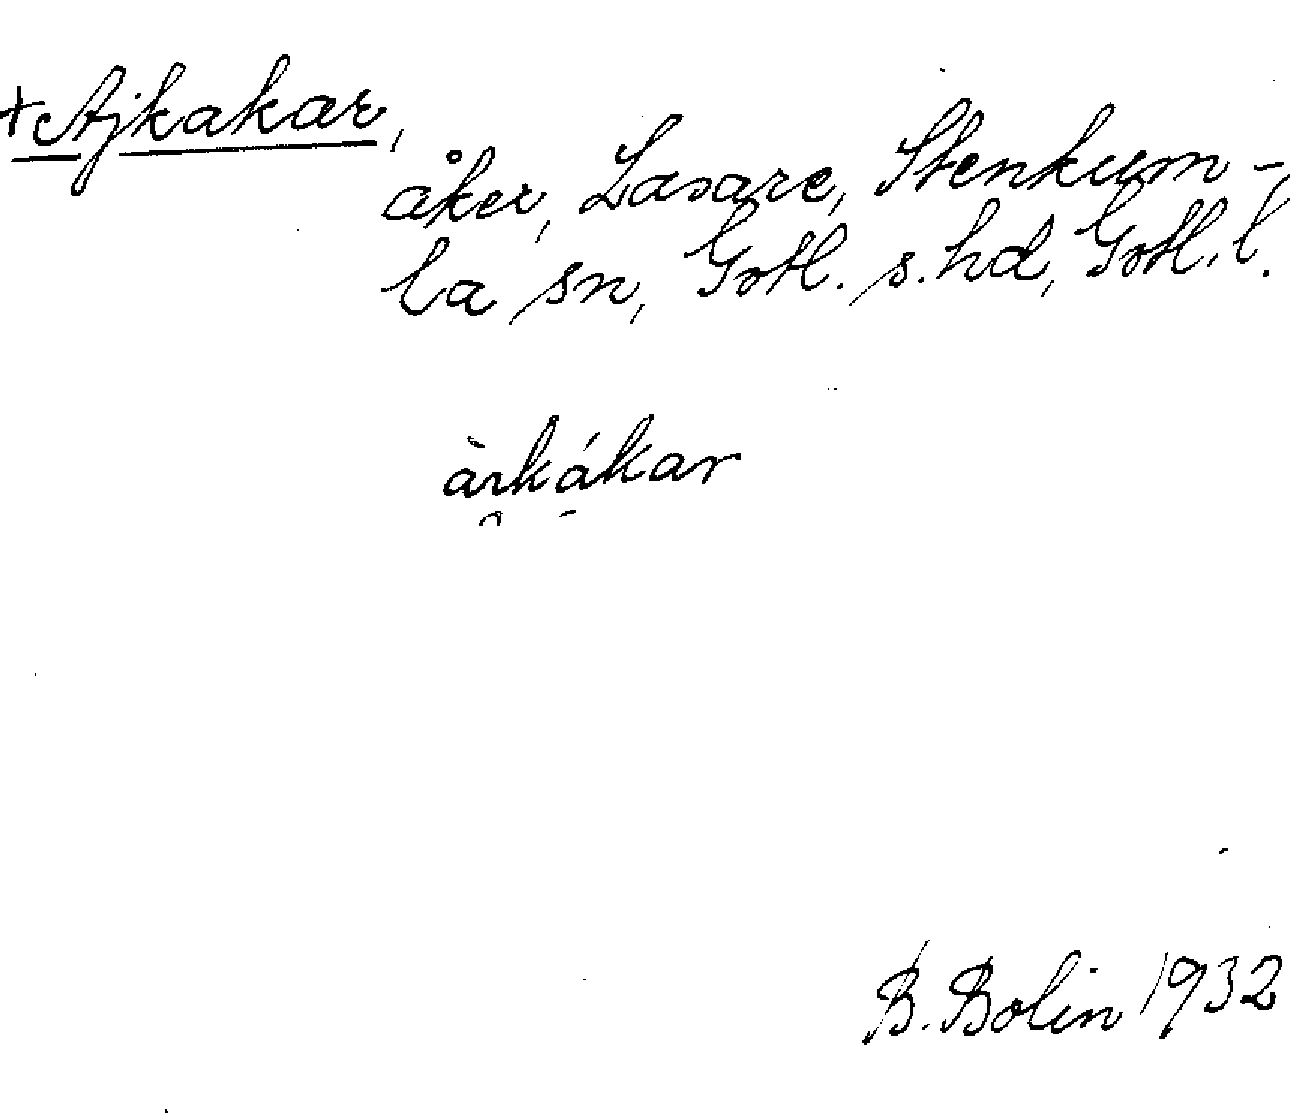 +Ajkakar,
åker, Lasare, Stenkum-
la sn, Gotl. s. hd, Gotl. l.
B. Bolin 1932